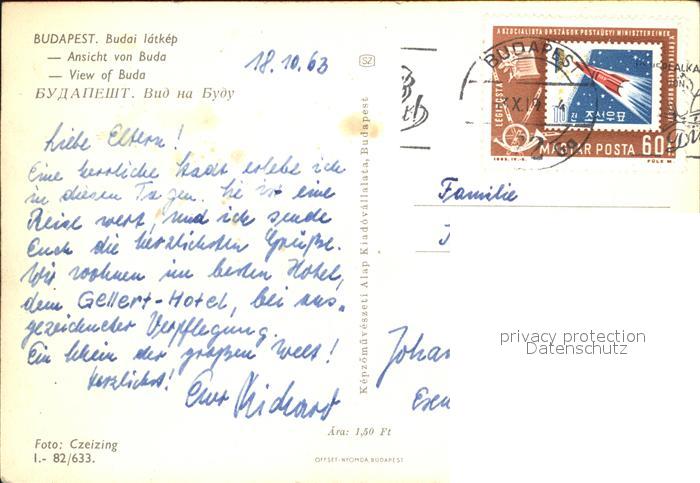 BUDAPEST. Budai látkép
— Ansicht von Buda
— View of Buda
БУДАПЕШТ. Вид на Буду
18.10.63
Liebe Eltern!
Eine herrliche Stadt erlebe ich
in diesen Tagen. Sie ist eine
Reise wert, und ich sende
Euch die herzlichsten Grüße.
Wir wohnen im besten Hotel,
dem Gellert-Hotel, bei aus-
gezeichneter Verpflegung.
Ein Schein der großen Welt!
Herzlichst! Euer Richard
Foto: Czeizing
I.- 82/633.
Ára: 1,50 Ft
OFFSET-NYOMDA BUDAPEST
Képzőművészeti Alap Kiadóvállalata, Budapest
SZ
A SZOCIALISTA ORSZÁGOK POSTAÜGYI MINISZTEREINEK
BUDAPEST
LÉGIPOSTA
10 전 조선우표
MAGYAR POSTA 60f
FÜLE M
Familie
Johan
privacy protection
Datenschutz